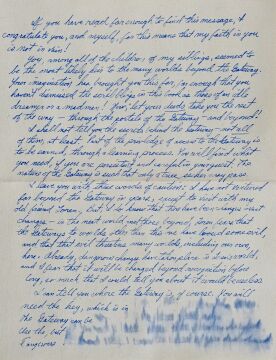 If you have read far enough to find this message, I
congratulate you, and myself, for this means that my faith in you
is not in vain!
You, among all of the children of my siblings, seemed to
be the most likely heir to the many worlds beyond the Gateway.
Your imagination has brought you this far in enough that you
haven't dismissed the scribblings in this book as those of an idle
dreamer or a madman! Now, let your take you the rest
of the way - through the portals of the Gateway - and beyond!
I shall not tell you the secrets behind the Gateway - not all
of them, at least. Part of the privilege of access to the Gateway is
to be earned, through a learning process. You will find what
you need, if you are persistent and careful in your pursuit. The
nature of the Gateway is such that only a true seeker may pass.
I leave you with these words of caution: I have not ventured
far beyond the Gateway in years, except to visit with my
old friend , but it is known that there have been strange, vast
changes in the next world, and those beyond. Some fear that
the Gateways to worlds other than this one have loosed some evil,
and that that evil threatens many worlds, including our own,
here. Already, dangerous change have taken place in his world,
and I fear that it will be changed beyond recognition before
long, so much that I could tell you about it would be useless.
I can tell you where the Gateway is, of course. You will
need the key, which is in
the Gateway can be
Use the